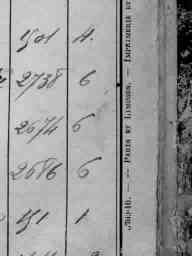 1501 4.
2738 6
2674 6
2686 6
151 1
PARIS ET LIMOGES. — IMPRIMERIE ET